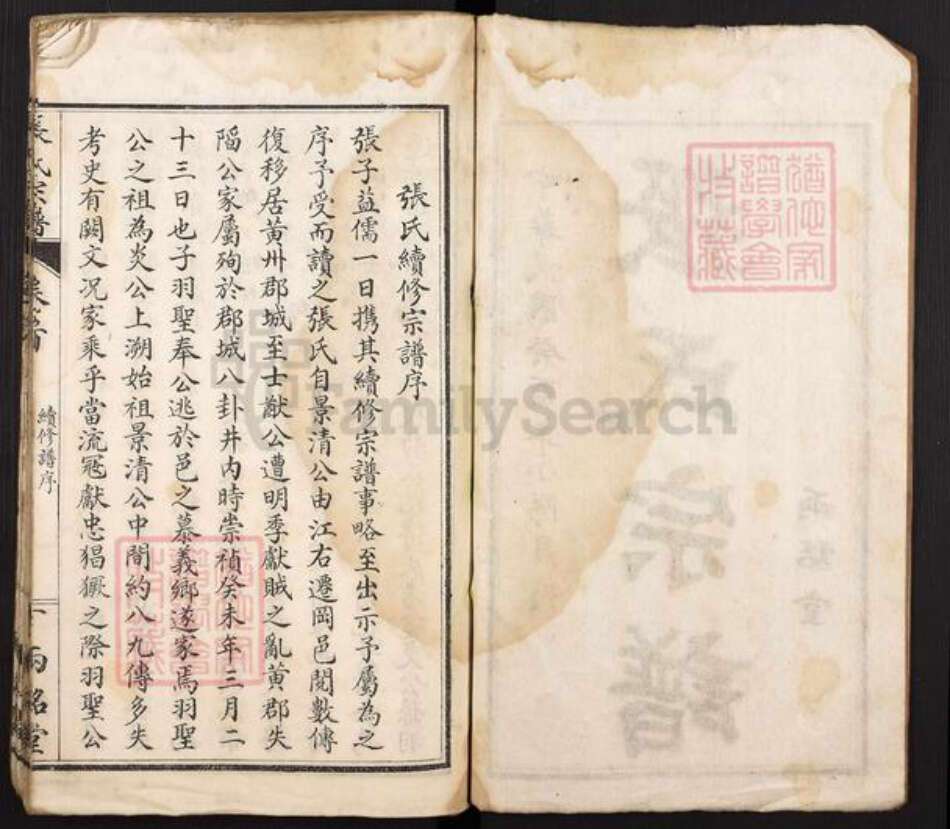 張氏續修宗譜序
張子益儒一日携其續修宗譜事略至出示予屬為之
序予受而讀之張氏自景清公由江右遷岡邑閱數傳
復移居黃州郡城至士猷公遭明季獻賊之亂黃郡失
陷公家屬殉於郡城八卦井內時崇禎癸未年三月二
十三日也子羽聖奉公逃於邑之慕義鄉遂家焉羽聖
公之祖為炎公上溯始祖景清公中間約八九傳多失
考史有闕文况家乘乎當流冦獻忠猖獗之際羽聖公
張氏宗譜
續修譜序
一
兩銘堂
FamilySearch
氏宗譜
兩銘堂